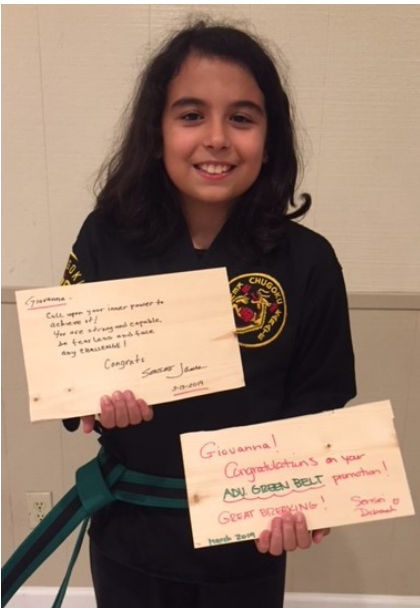 CHUGOKU
Giovanna -
Call upon your inner power to
achieve it!
You are strong and capable,
be fearless and face
any CHALLENGE!
Congrats
Sensei
3-19-2019
Giovanna!
Congratulations on your
ADV. GREEN BELT promotion!
GREAT BREAKING!
Sensei
Deborah
March 2019